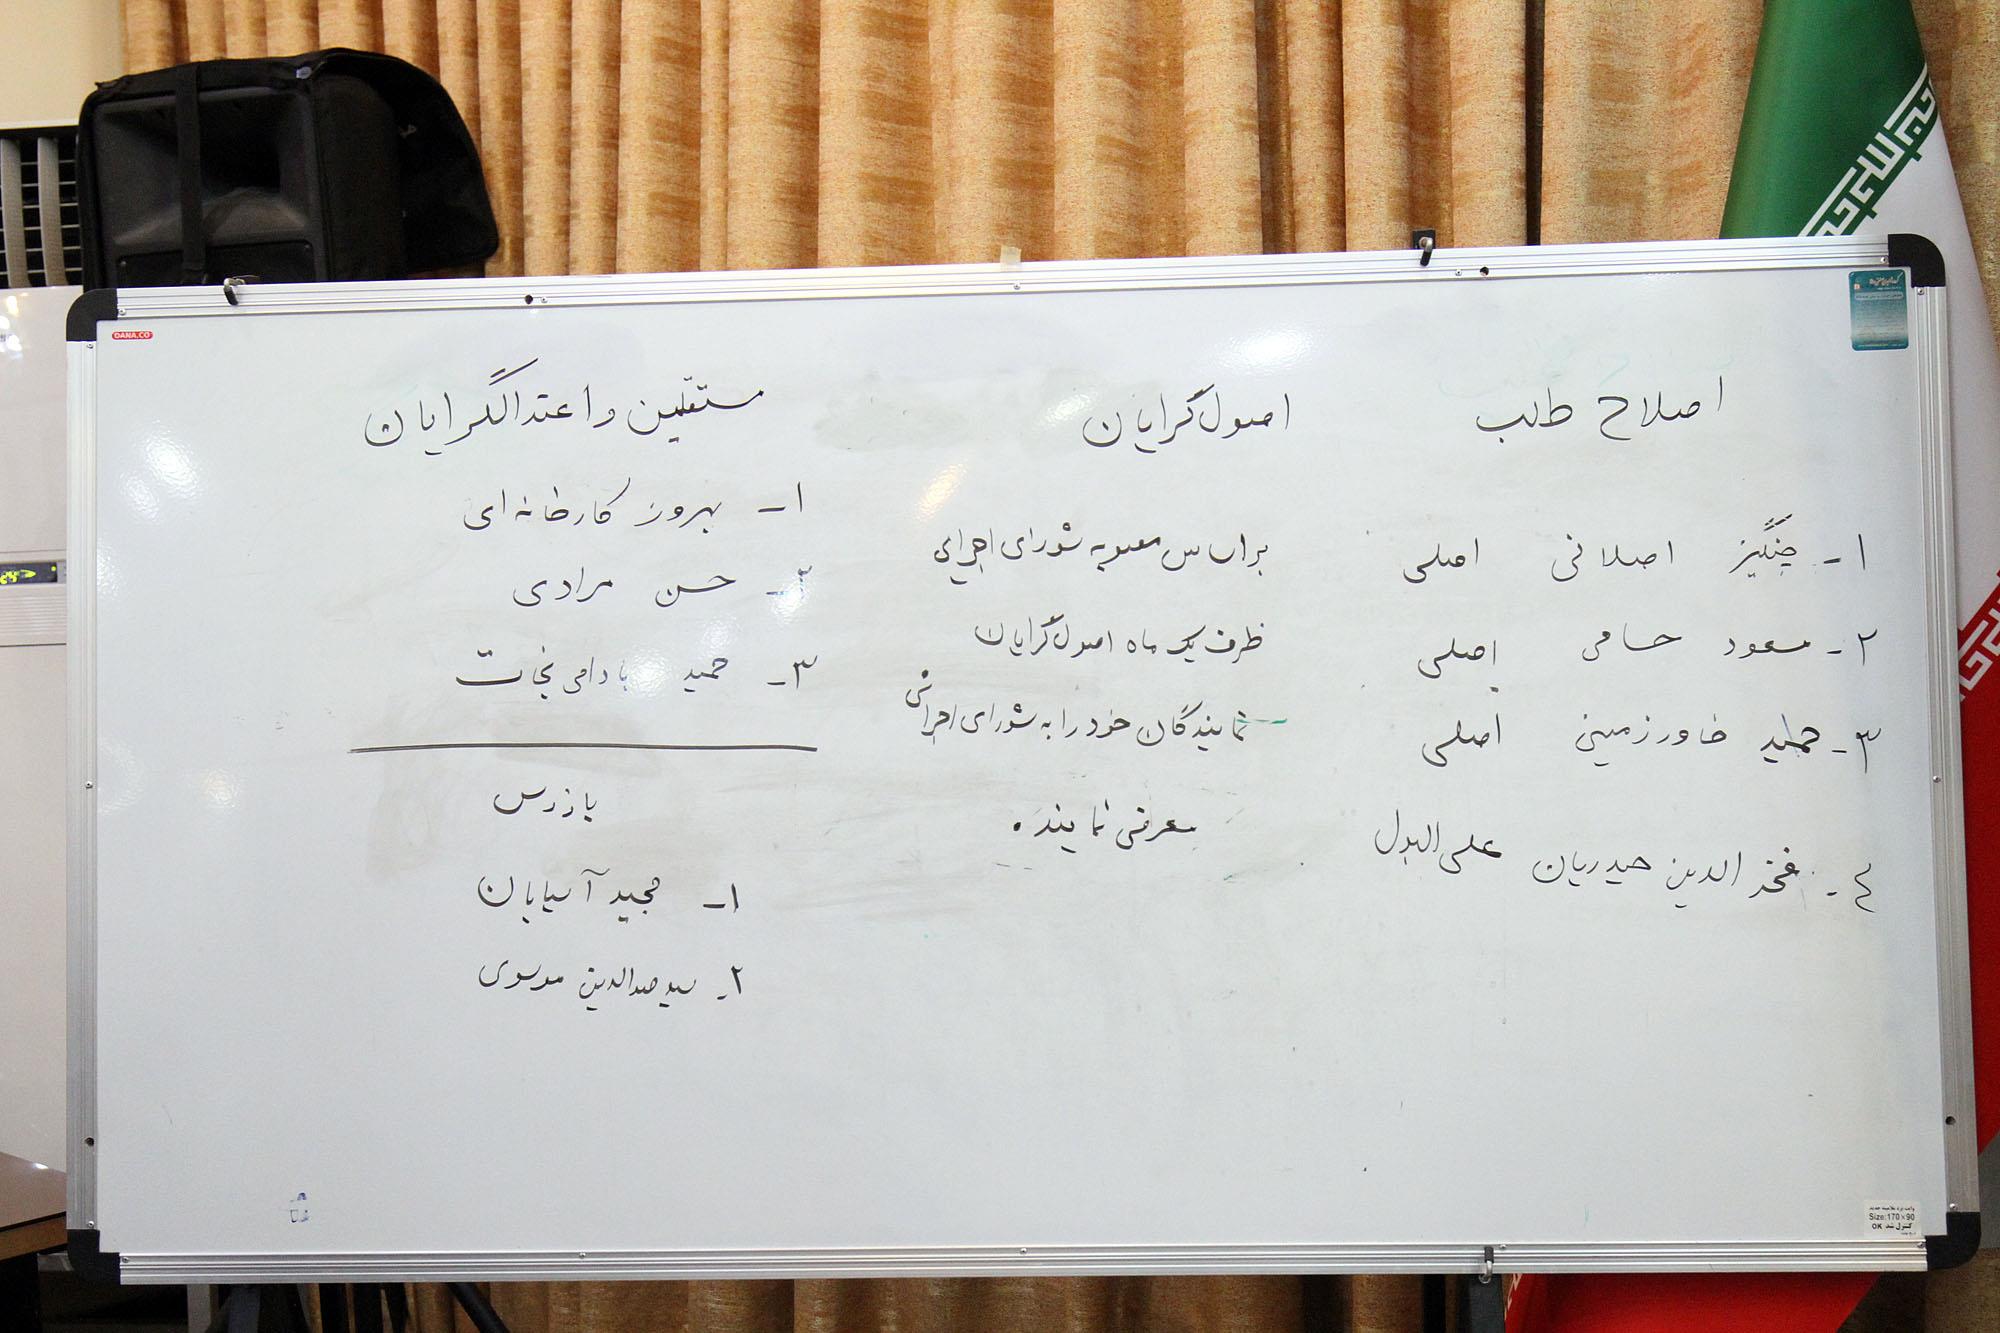 اصلاح طلب
۱- چنگیز اصلانی اصلی
۲- مسعود حسامی اصلی
۳- حمید خاورزمینی اصلی
٤- فخر الدین حیدریان علی البدل
اصول گرایان
براساس مصوبه شورای اجرایی
ظرف یک ماه اصول گرایان
نمایندگان خود را به شورای اجرائی
معرفی نمایند.
مستقلین و اعتدالگرایان
۱- بهروز کارخانه ای
۲- حسن مرادی
۳- حمید بادامی نجات
بازرس
۱- مجید آسیابان
۲- سید صدرالدین موسوی
DANA.CO
Size:170×90
کنترل شد OK